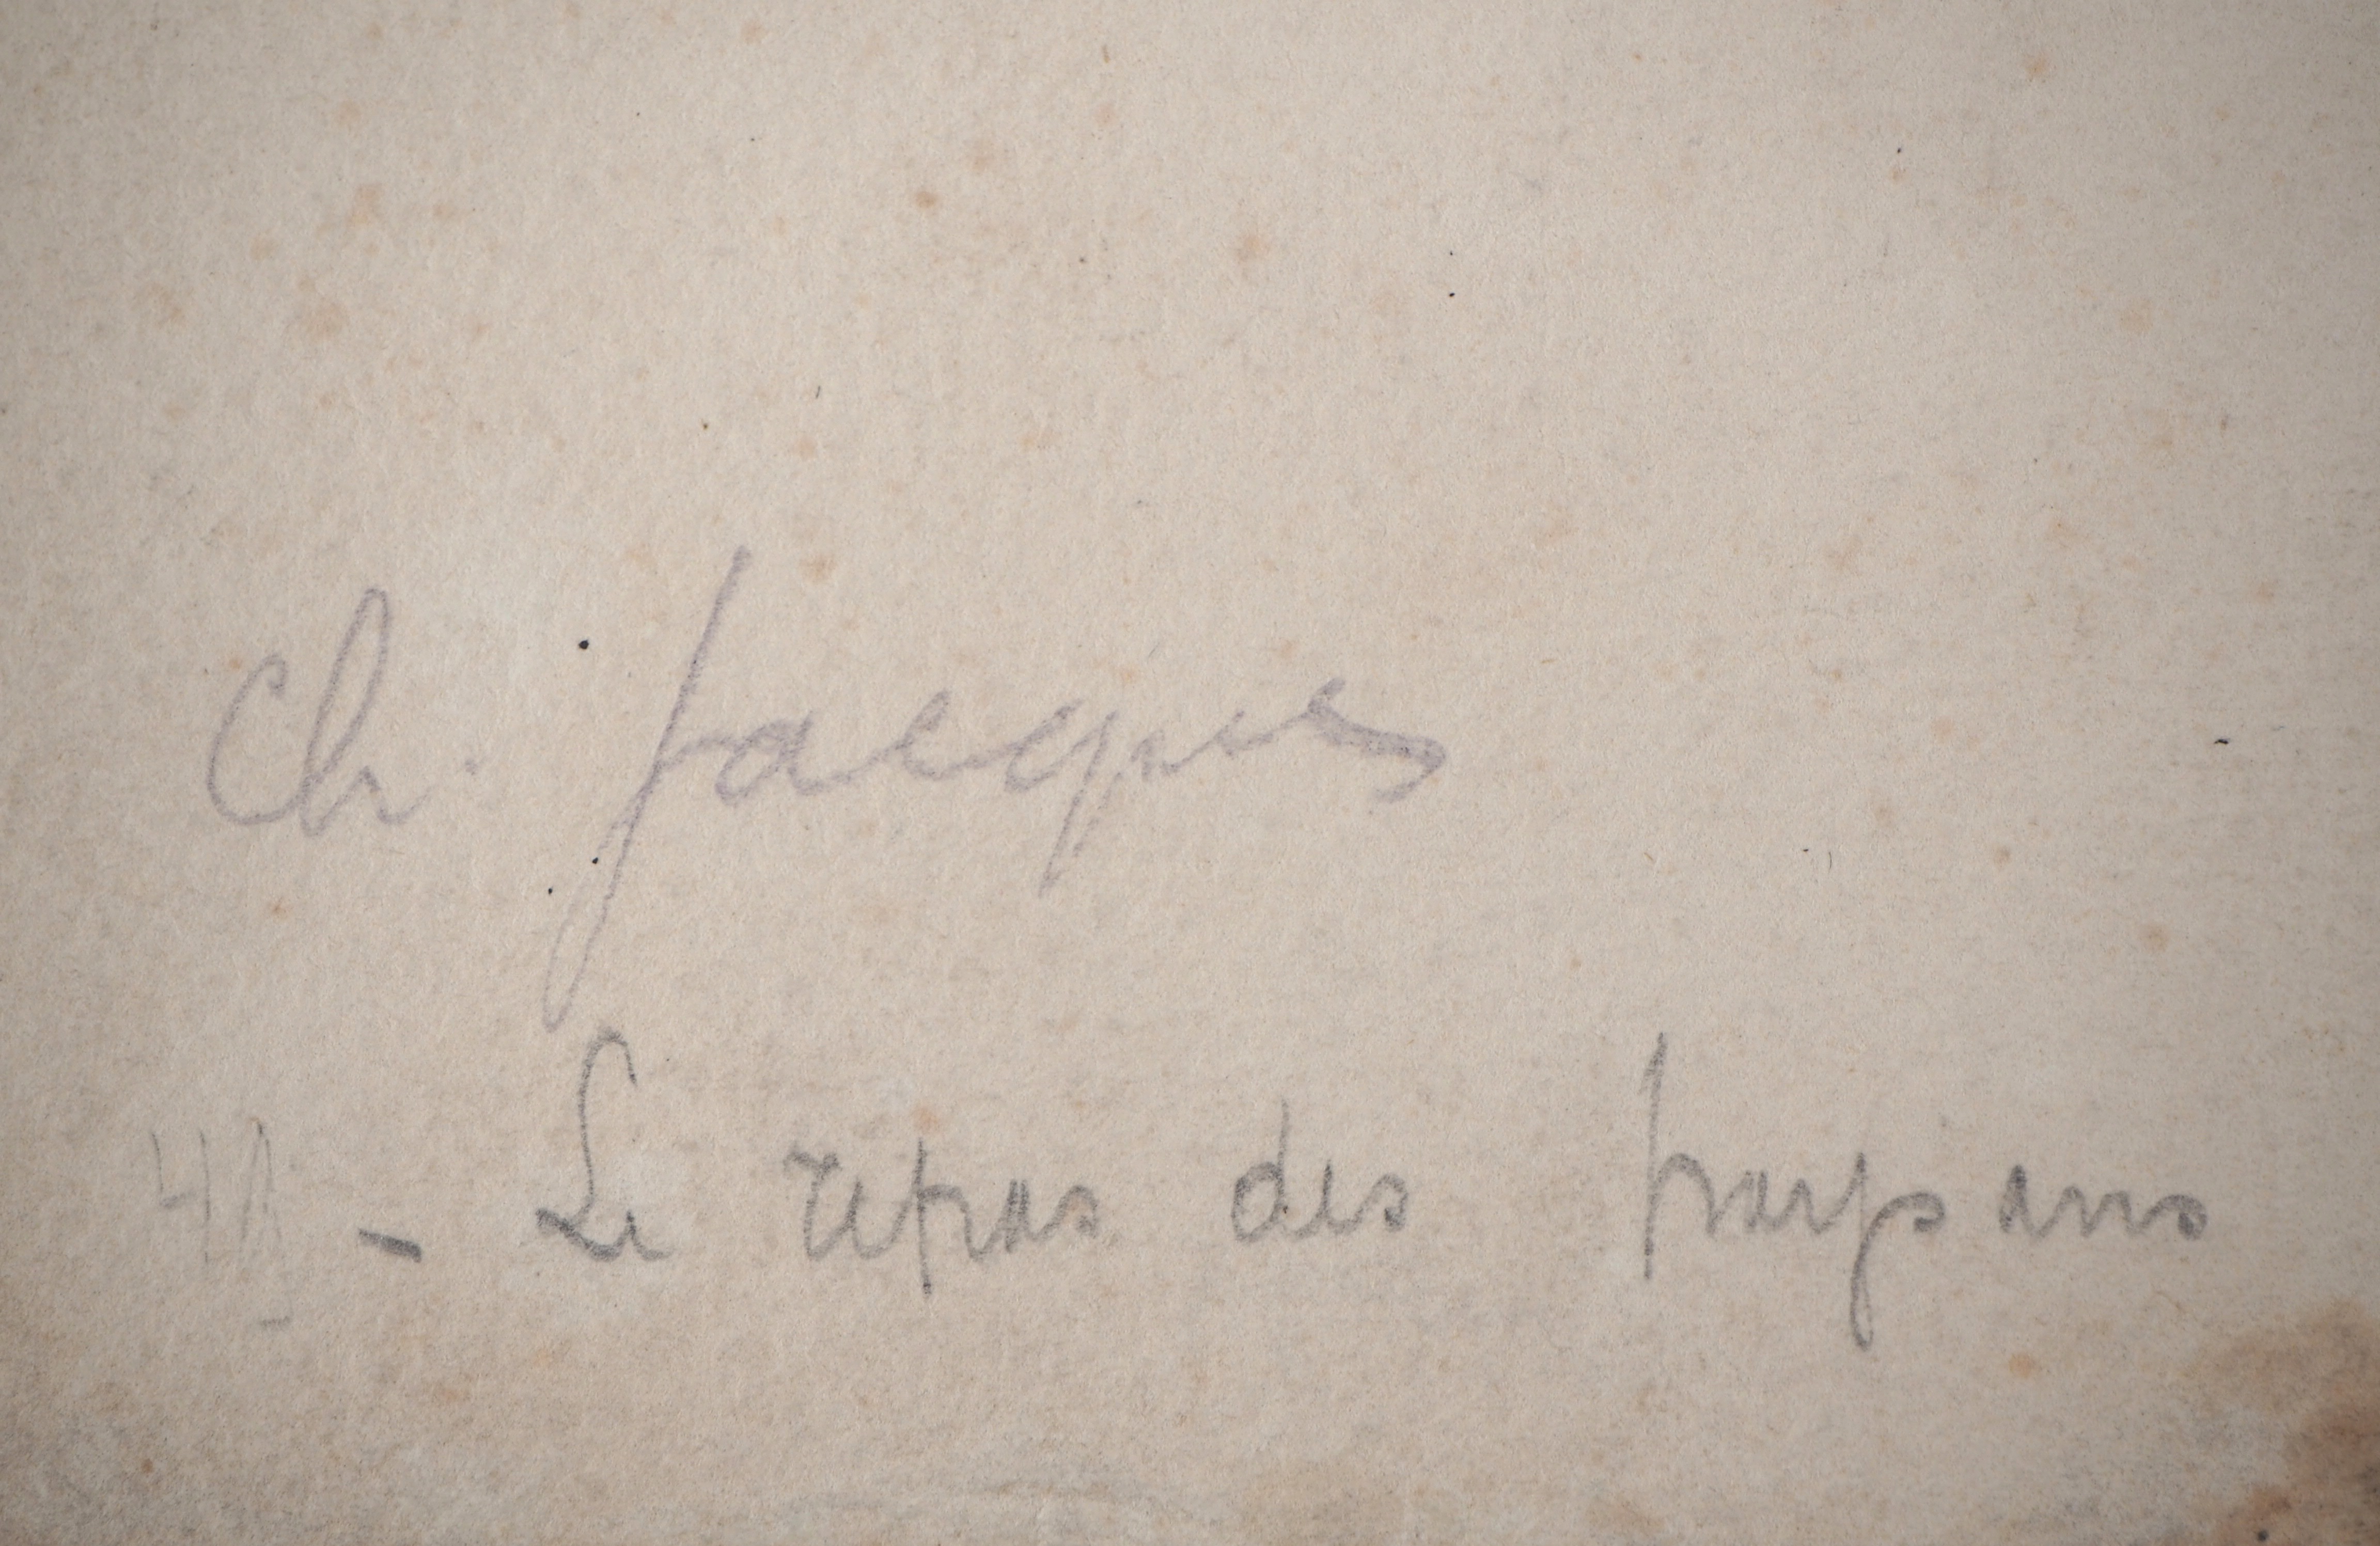 Ch. Jacques
- Le repas des paysans